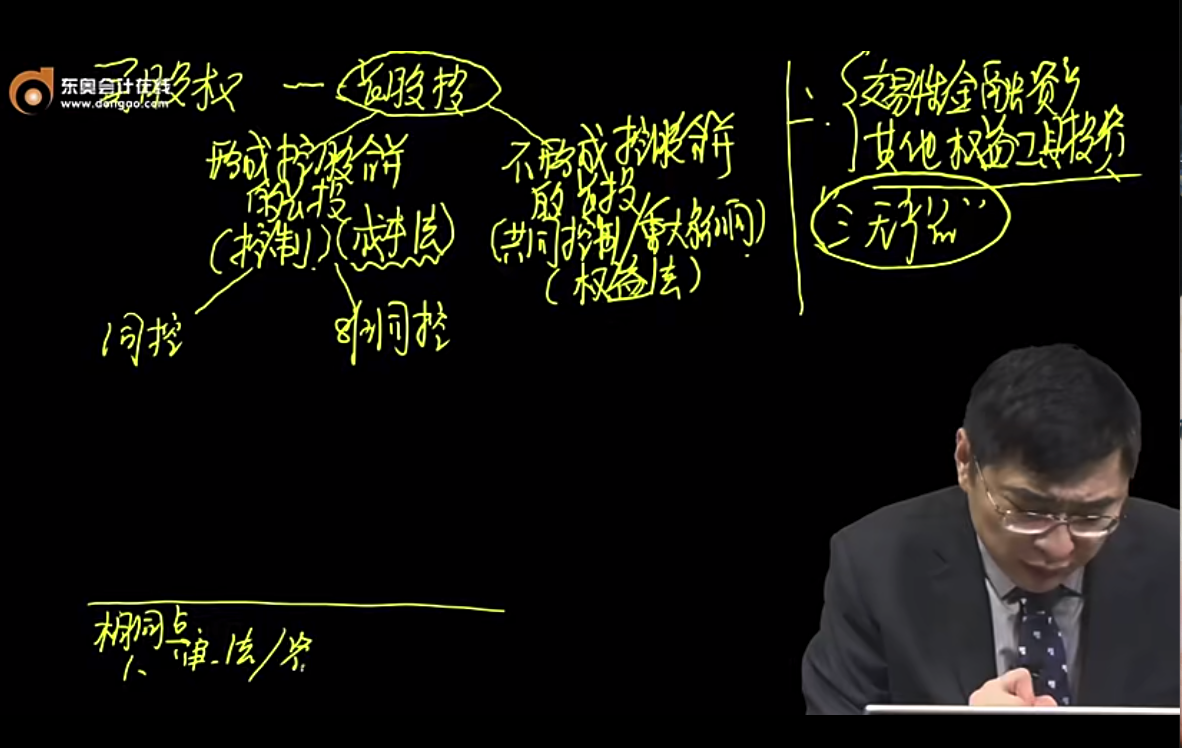 东奥会计在线
www.dongao.com
买股权 — 长股投
形成控股合并
的长投
(控制)(成本法)
同控
非同控
不形成控股合并
的长投
(共同控制/重大影响)
(权益法)
交易性金融资产
其他权益工具投资
三无
相同点
1、审、法/资